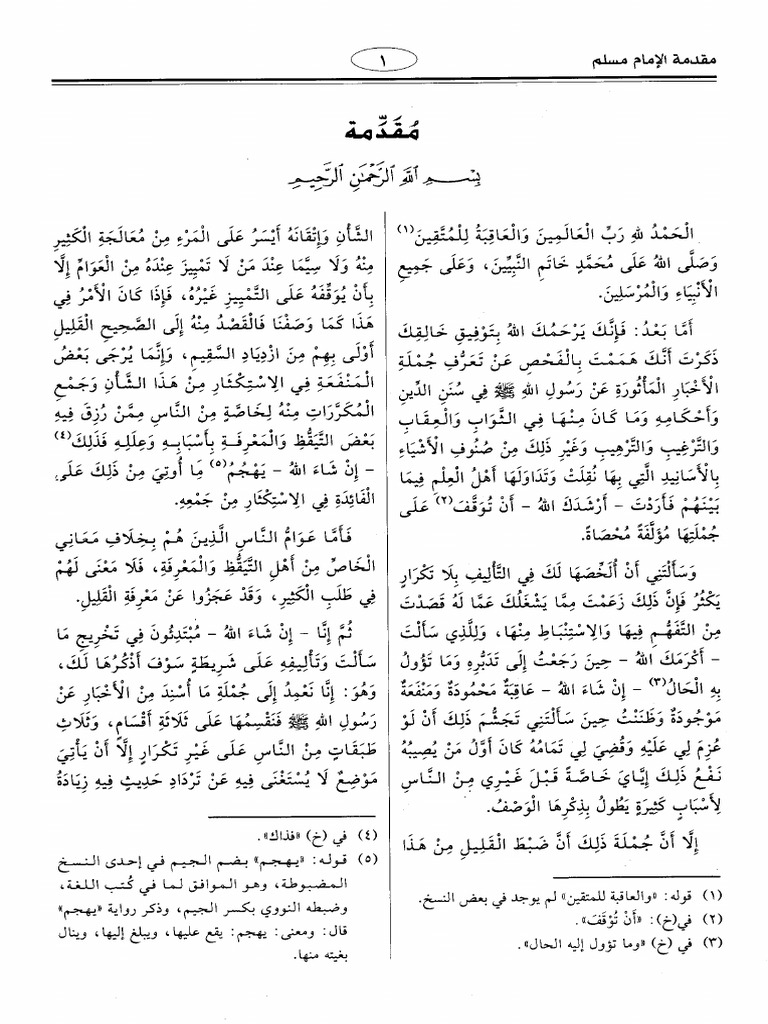 مقدمة الإمام مسلم
١
مُقَدِّمة
بِسْمِ اللَّهِ الرَّحْمَٰنِ الرَّحِيمِ
الْحَمْدُ لِلهِ رَبِّ الْعَالَمِينَ وَالْعَاقِبَةُ لِلْمُتَّقِينَ(١)
وَصَلَّى اللهُ عَلَى مُحَمَّدٍ خَاتَمِ النَّبِيِّينَ، وَعَلَى جَمِيعِ
الْأَنْبِيَاءِ وَالْمُرْسَلِينَ.
أَمَّا بَعْدُ: فَإِنَّكَ يَرْحَمُكَ اللهُ بِتَوْفِيقِ خَالِقِكَ
ذَكَرْتَ أَنَّكَ هَمَمْتَ بِالْفَحْصِ عَنْ تَعَرُّفِ جُمْلَةِ
الْأَخْبَارِ الْمَأْثُورَةِ عَنْ رَسُولِ اللهِ ﷺ فِي سُنَنِ الدِّينِ
وَأَحْكَامِهِ وَمَا كَانَ مِنْهَا فِي الثَّوَابِ وَالْعِقَابِ
وَالتَّرْغِيبِ وَالتَّرْهِيبِ وَغَيْرِ ذَلِكَ مِنْ صُنُوفِ الْأَشْيَاءِ
بِالْأَسَانِيدِ الَّتِي بِهَا نُقِلَتْ وَتَدَاوَلَهَا أَهْلُ الْعِلْمِ فِيمَا
بَيْنَهُمْ فَأَرَدْتَ – أَرْشَدَكَ اللهُ – أَنْ تُوَقَّفَ(٢) عَلَى
جُمْلَتِهَا مُؤَلَّفَةً مُحْصَاةً.
وَسَأَلْتَنِي أَنْ أُلَخِّصَهَا لَكَ فِي التَّأْلِيفِ بِلَا تَكْرَارٍ
يَكْثُرُ فَإِنَّ ذَلِكَ زَعَمْتَ مِمَّا يَشْغَلُكَ عَمَّا لَهُ قَصَدْتَ
مِنْ التَّفَهُّمِ فِيهَا وَالِاسْتِنْبَاطِ مِنْهَا، وَلِلَّذِي سَأَلْتَ
– أَكْرَمَكَ اللهُ – حِينَ رَجَعْتُ إِلَى تَدَبُّرِهِ وَمَا تَؤُولُ
بِهِ الْحَالُ(٣) – إِنْ شَاءَ اللهُ – عَاقِبَةٌ مَحْمُودَةٌ وَمَنْفَعَةٌ
مَوْجُودَةٌ وَظَنَنْتُ حِينَ سَأَلْتَنِي تَجَشُّمَ ذَلِكَ أَنْ لَوْ
عُزِمَ لِي عَلَيْهِ وَقُضِيَ لِي تَمَامُهُ كَانَ أَوَّلُ مَنْ يُصِيبُهُ
نَفْعُ ذَلِكَ إِيَّايَ خَاصَّةً قَبْلَ غَيْرِي مِنْ النَّاسِ
لِأَسْبَابٍ كَثِيرَةٍ يَطُولُ بِذِكْرِهَا الْوَصْفُ.
إِلَّا أَنَّ جُمْلَةَ ذَلِكَ أَنَّ ضَبْطَ الْقَلِيلِ مِنْ هَذَا
(١) قوله: «والعاقبة للمتقين» لم يوجد في بعض النسخ.
(٢) في(خ): «أَنْ تُوْقَفَ».
(٣) في (خ) «وما تؤول إليه الحال».
الشَّأْنِ وَإِتْقَانَهُ أَيْسَرُ عَلَى الْمَرْءِ مِنْ مُعَالَجَةِ الْكَثِيرِ
مِنْهُ وَلَا سِيَّمَا عِنْدَ مَنْ لَا تَمْيِيزَ عِنْدَهُ مِنْ الْعَوَامِّ إِلَّا
بِأَنْ يُوَقِّفَهُ عَلَى التَّمْيِيزِ غَيْرُهُ، فَإِذَا كَانَ الْأَمْرُ فِي
هَذَا كَمَا وَصَفْنَا فَالْقَصْدُ مِنْهُ إِلَى الصَّحِيحِ الْقَلِيلِ
أَوْلَى بِهِمْ مِنَ ازْدِيَادِ السَّقِيمِ، وَإِنَّمَا يُرْجَى بَعْضُ
الْمَنْفَعَةِ فِي الِاسْتِكْثَارِ مِنْ هَذَا الشَّأْنِ وَجَمْعِ
الْمُكَرَّرَاتِ مِنْهُ لِخَاصَّةٍ مِنْ النَّاسِ مِمَّنْ رُزِقَ فِيهِ
بَعْضَ التَّيَقُّظِ وَالْمَعْرِفَةِ بِأَسْبَابِهِ وَعِلَلِهِ فَذَلِكَ(٤)
– إِنْ شَاءَ اللهُ – يَهْجُمُ(٥) مِا أُوتِيَ مِنْ ذَلِكَ عَلَى
الْفَائِدَةِ فِي الِاسْتِكْثَارِ مِنْ جَمْعِهِ.
فَأَمَّا عَوَامُّ النَّاسِ الَّذِينَ هُمْ بِخِلَافِ مَعَانِي
الْخَاصِّ مِنْ أَهْلِ التَّيَقُّظِ وَالْمَعْرِفَةِ، فَلَا مَعْنَى لَهُمْ
فِي طَلَبِ الْكَثِيرِ، وَقَدْ عَجَزُوا عَنْ مَعْرِفَةِ الْقَلِيلِ.
ثُمَّ إِنَّا – إِنْ شَاءَ اللهُ – مُبْتَدِئُونَ فِي تَخْرِيجِ مَا
سَأَلْتَ وَتَأْلِيفِهِ عَلَى شَرِيطَةٍ سَوْفَ أَذْكُرُهَا لَكَ،
وَهُوَ: إِنَّا نَعْمِدُ إِلَى جُمْلَةِ مَا أُسْنِدَ مِنْ الْأَخْبَارِ عَنْ
رَسُولِ اللهِ ﷺ فَنَقْسِمُهَا عَلَى ثَلَاثَةِ أَقْسَامٍ، وَثَلَاثِ
طَبَقَاتٍ مِنْ النَّاسِ عَلَى غَيْرِ تَكْرَارٍ إِلَّا أَنْ يَأْتِيَ
مَوْضِعٌ لَا يُسْتَغْنَى فِيهِ عَنْ تَرْدَادِ حَدِيثٍ فِيهِ زِيَادَةُ
(٤) في (خ) «فذاك».
(٥) قوله: «يهجم» بضم الجيم في إحدى النسخ
المضبوطة، وهو الموافق لما في كُتب اللغة،
وضبطه النووي بكسر الجيم، وذكر رواية «يهجم»
قال: ومعنى: يهجم: يقع عليها، ويبلغ إليها، وينال
بغيته منها.